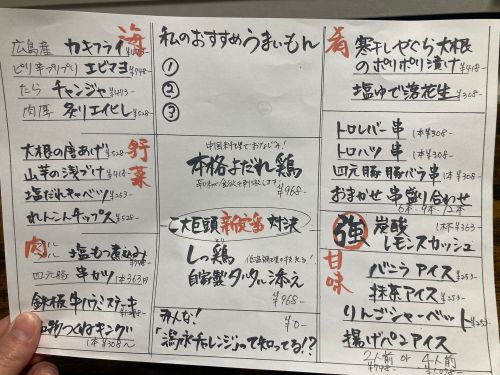 海
広島産 カキフライ
ピリ辛プリプリ エビマヨ ¥748-
たら チャンジャ ¥473-
肉厚 炙りエイヒレ ¥528-
野菜
大根の唐あげ ¥528-
山芋の浅づけ ¥418-
塩だれキャベツ ¥253-
れんこんチップス ¥528-
肉
塩もつ煮込み
四元豚 串カツ 1本363円
鉄板牛ハラミステーキ
つくねキング
1本¥308〜
私のおすすめうまいもん
①
②
③
中国料理でおなじみ!
本格よだれ鶏
¥968-
二大巨頭 新定番 対決
しっ鶏
自家製タルタル添え
¥968-
みんな! ¥0-
「湯水チャレンジ」って知ってる!?
肴
寒干しやぐら大根
のポリポリ漬け ¥418-
塩ゆで落花生 ¥308-
トロレバー串 1本¥308-
トロハツ 串 1本¥308-
四元豚豚バラ串 1本¥308-
おまかせ 串盛り合わせ
6本・9本・12本
強 炭酸 1杯¥363-
レモンスカッシュ
甘味
バニラアイス ¥253-
抹茶アイス ¥253-
りんごシャーベット ¥253-
揚げパンアイス
2人前 or 4人前
¥748-